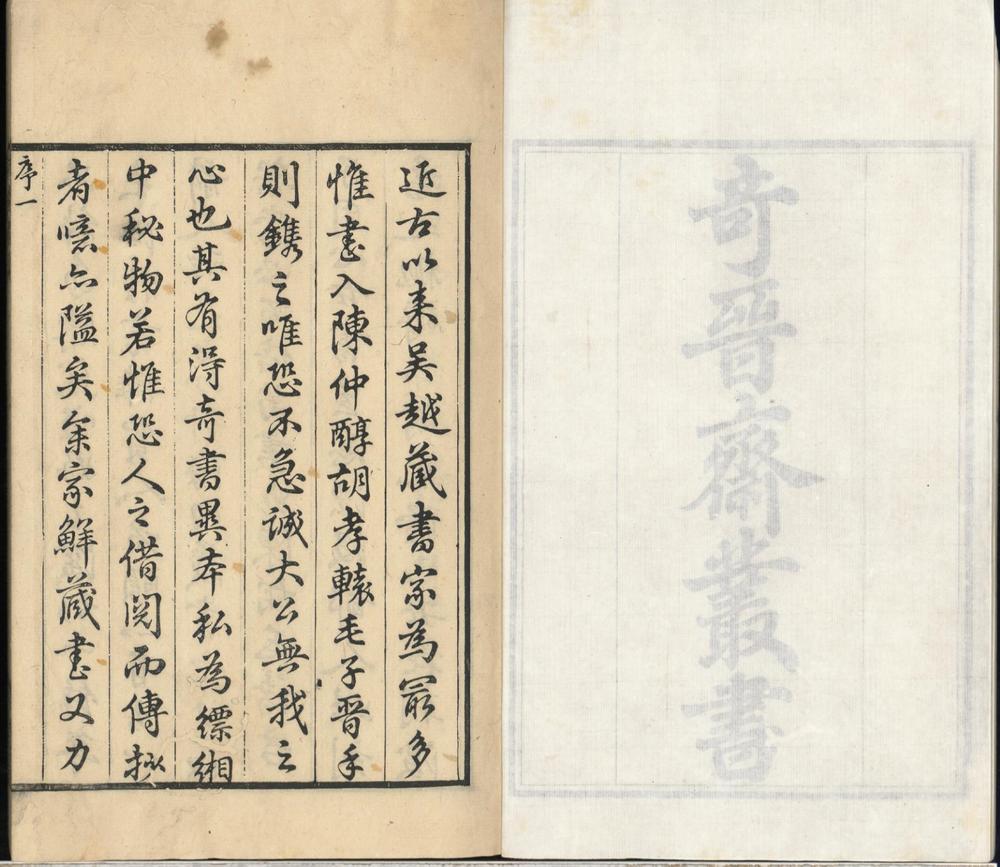 奇晉齋叢書
近古以来吴越藏書家為冣多
惟書入陳仲醇胡孝轅毛子晉手
則鐫之唯恐不急誠大公無我之
心也其有得奇書異本私為縹緗
中秘物若惟恐人之借閱而傳抄
者噫亦隘矣余家鮮藏書又力
序一